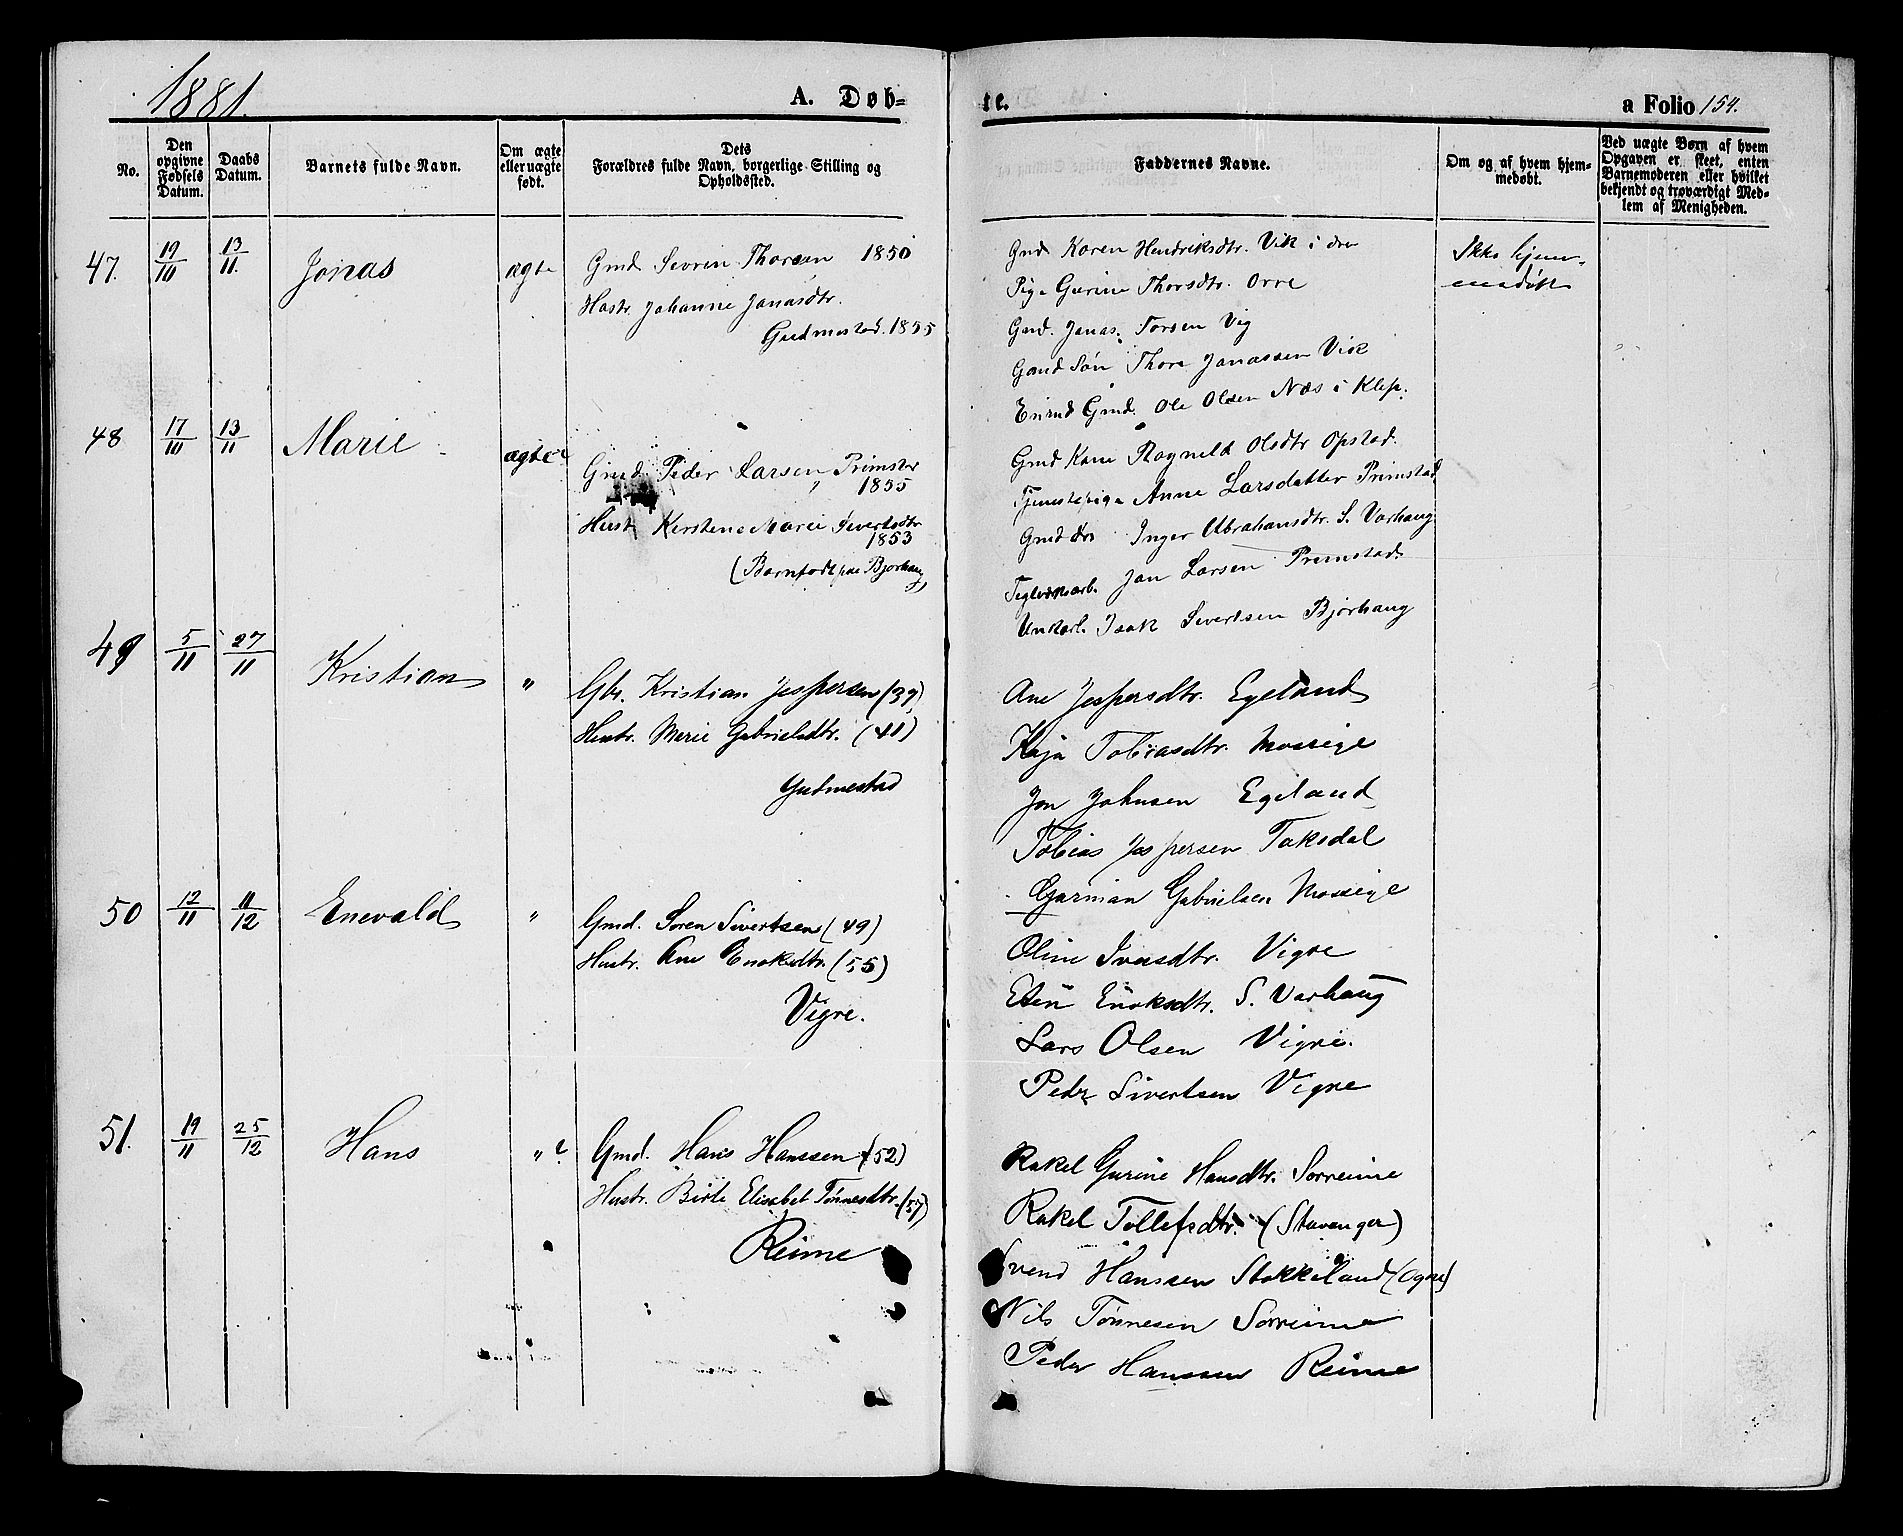 1881.
A. Døb-
te.
a Folio 154.
No.
Den opgivne Fødsels Datum.
Daabs Datum.
Barnets fulde Navn.
Om ægte eller uægte født.
Dets Forældres fulde Navn, borgerlige Stilling og Opholdssted.
Faddernes Navne.
Om og af hvem hjemmedøbt.
Ved uægte Børn af hvem Opgaven er skeet, enten Barnemoderen eller hvilket bekjendt og troværdigt Medlem af Menigheden.
47. 19/10 13/11. Jonas ægte
Gmd Sevrin Thorsen 1850
Hustr. Johanne Jonasdtr.
Gudmestad. 1855
Gmd Karen Hendriksdtr. Vik i
Pige Gurine Thorsdtr. Orre
Gmd. Jonas. Torsen Vig
Gaard Søn Thore Jonassen Vik
Gmd. Ole Olsen Næs i Klep.
Ikke hjem-
medøbt
48 17/10 13/11 Marie ægte
Gmd. Peder Larsen Primstad
1855
Hustr Kirstene Marie Sivertsdtr
1853
(Barnfødt paa Bjorhaug)
Gmd Kone Ragneld Olsdtr Opstad.
Tjenestepige Anne Larsdatter Primstad
Gmd Kone Inger Abrahamsdtr. S. Varhaug
Teglverksarb. Jon Larsen Primstad
Unkarl. Isak Sivertsen Bjorhaug
49 5/11 27/11 Kristian "
Gbr. Kristian Jespersen (39)
Hustr. Marie Gabrielsdtr. (41)
Gudmestad
Ane Jespersdtr. Egeland
Kaja Tobiasdtr. Mossige
Jon Johnsen Egeland
Tobias Jespersen Taksdal
Garman Gabrielsen Mossige
50 12/11 11/12 Enevald "
Gmd. Søren Sivertsen (49)
Hustr. Ane Enoksdtr. (55)
Vigre.
Oline Iversdtr. Vigre
Enoksdtr. S. Varhaug
Lars Olsen Vigre.
Peder Sivertsen Vigre
51. 19/11 25/12 Hans "
Gmd. Hans Hanssen (52)
Hustr. Birte Elisabet Tønnesdtr. (57)
Reime
Rakel Gurine Hansdtr. Sørreime
Rakel Tollefsdtr. (Stavanger)
Svend Hanssen Stokkeland (Ogne)
Nils Tønnesen Sørreime
Peder Hanssen Reime